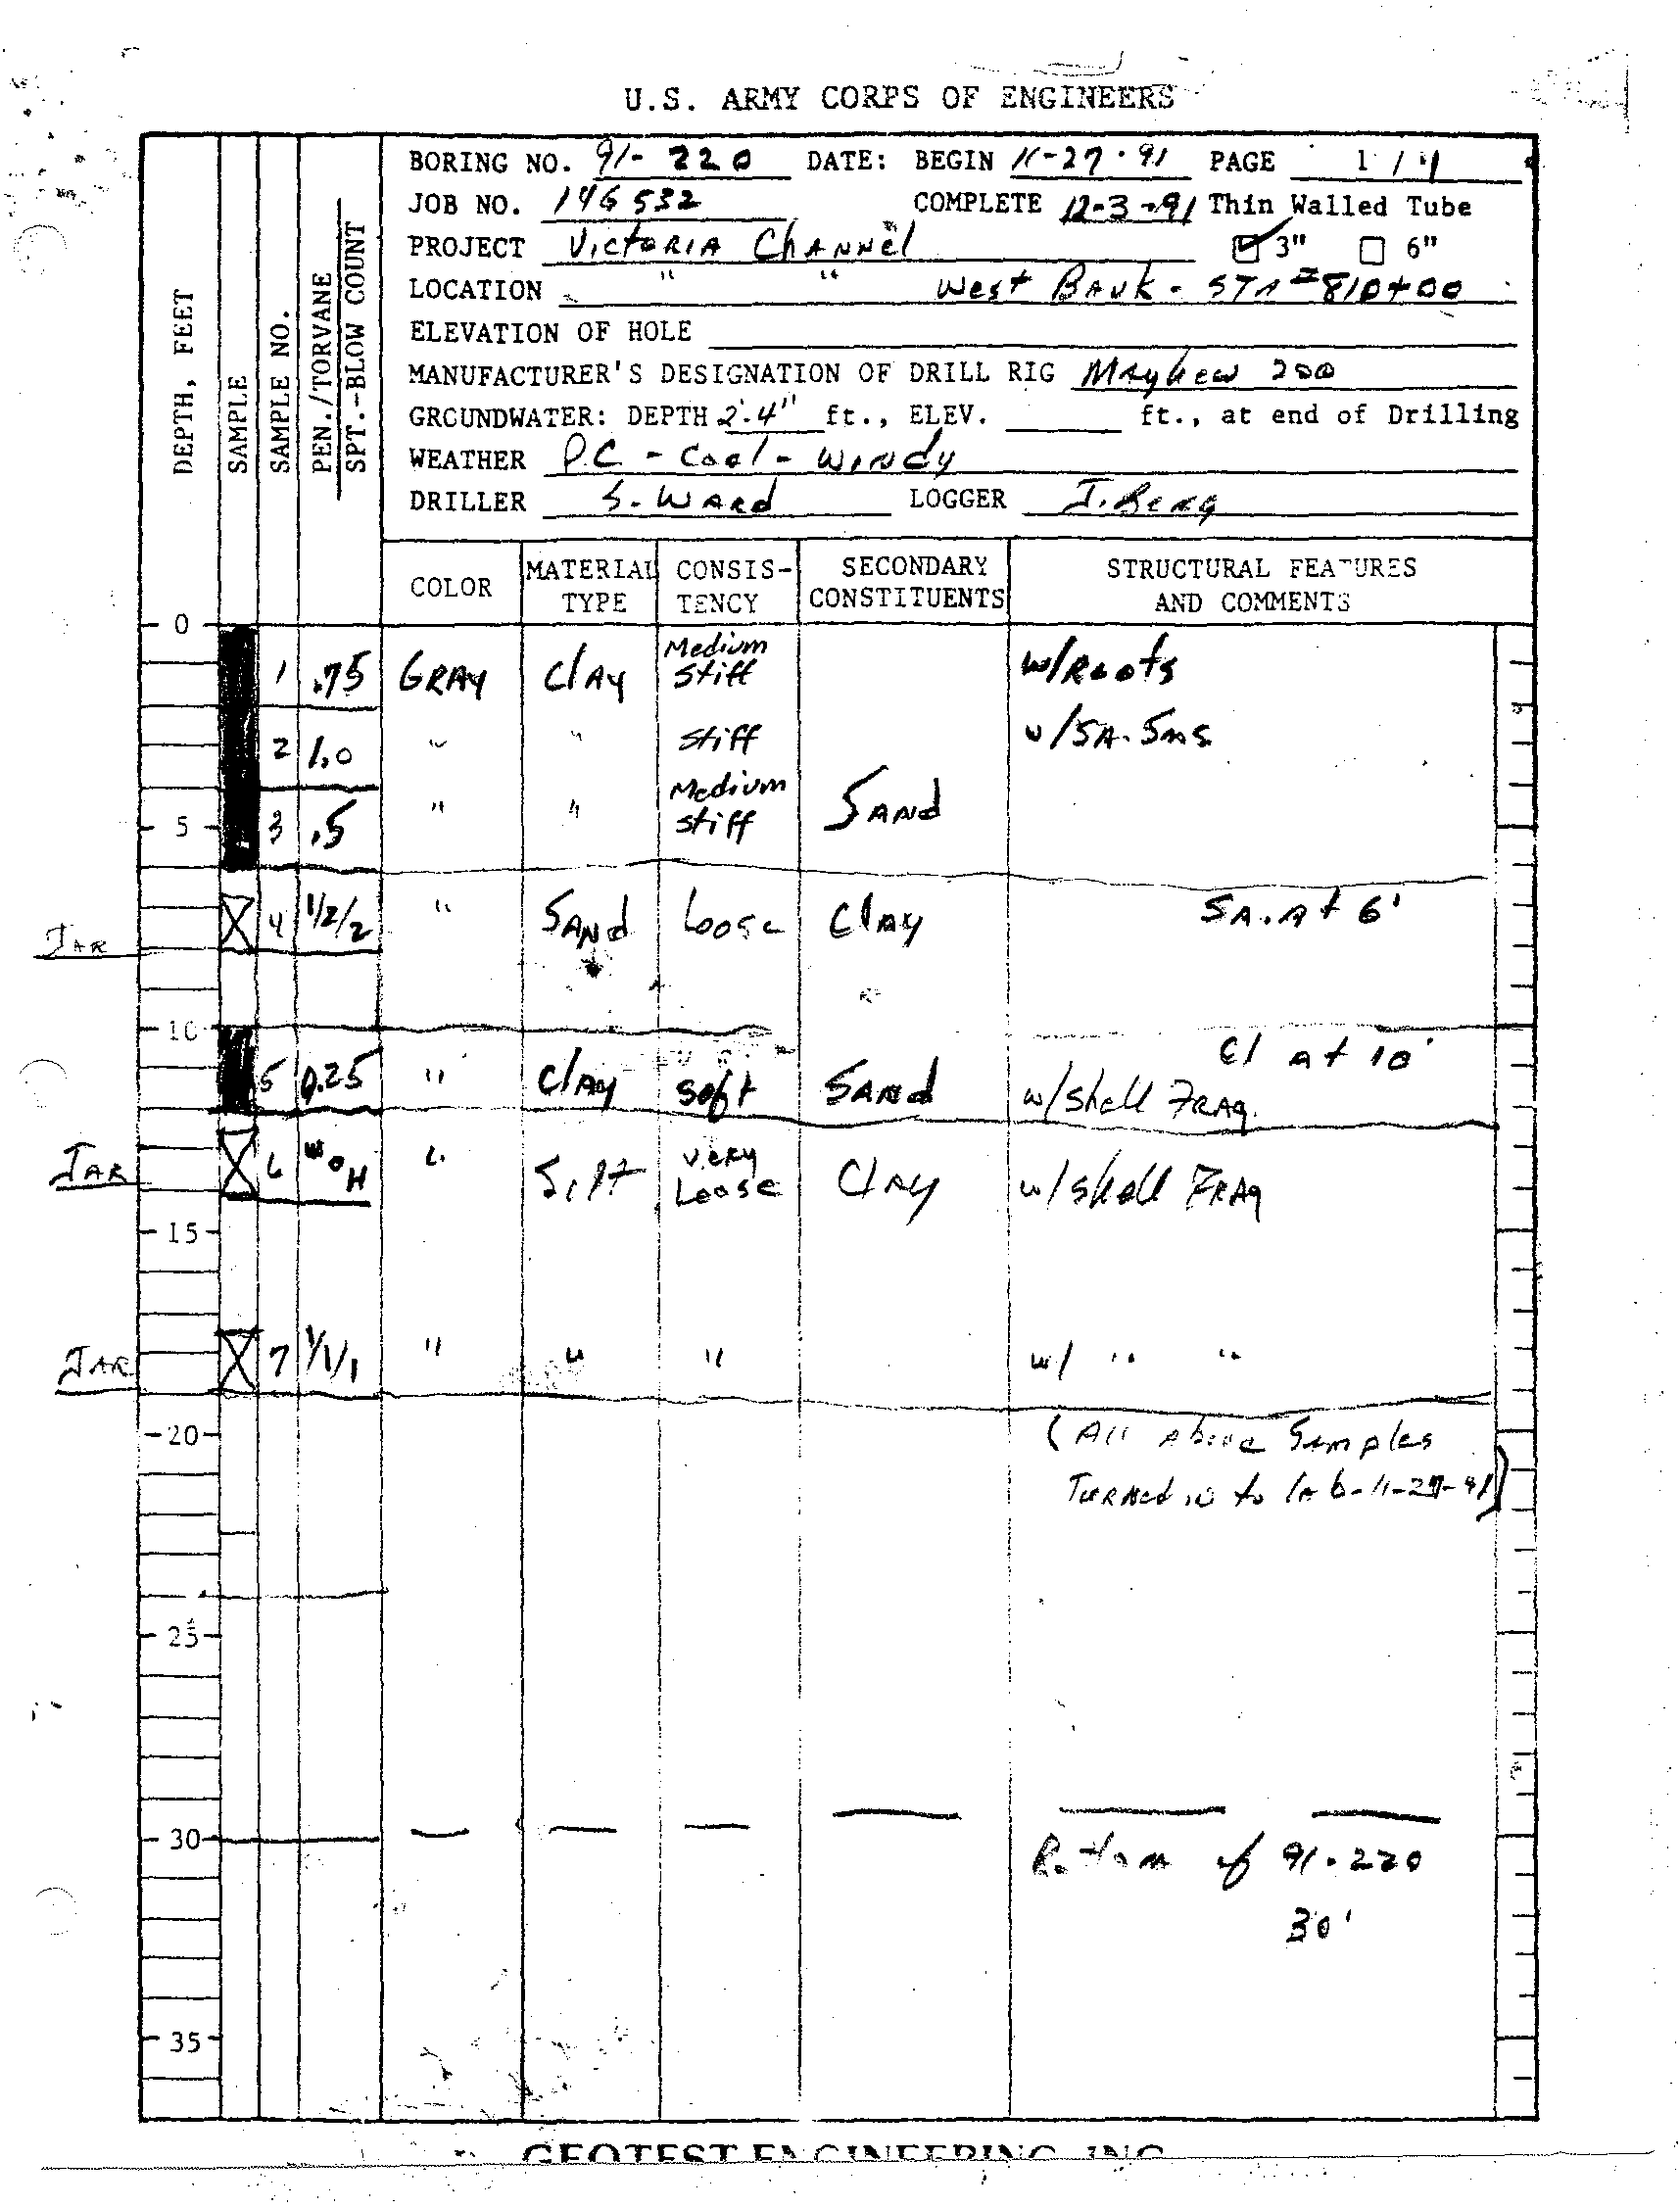 U.S. ARMY CORPS OF ENGINEERS
BORING NO. 91-220 DATE: BEGIN 11-27-91 PAGE 1 / 1
JOB NO. 146532 COMPLETE 12-3-91 Thin Walled Tube
PROJECT Victoria Channel 3" 6"
LOCATION " " West Bank - STA # 810+00
ELEVATION OF HOLE
MANUFACTURER'S DESIGNATION OF DRILL RIG Mayhew 200
GROUNDWATER: DEPTH 2'.4" ft., ELEV. ft., at end of Drilling
WEATHER P.C - Cool - Windy
DRILLER S. Ward LOGGER J. Berg
DEPTH, FEET
SAMPLE
SAMPLE NO.
PEN./TORVANE
SPT.-BLOW COUNT
COLOR MATERIAL TYPE CONSIS-TENCY SECONDARY CONSTITUENTS STRUCTURAL FEATURES AND COMMENTS
0
1 .75 GRAY Clay Medium Stiff w/Roots
2 1.0 " " Stiff w/SA. Sms
5 3 .5 " " Medium Stiff Sand
Jar 4 1/2/2 " Sand Loose Clay SA. at 6'
10 Cl at 10'
5 0.25 " Clay Soft Sand w/shell Frag.
Jar 6 WOH " Silt very Loose Clay w/shell Frag
15
Jar 7 1/1/1 " " " w/ " "
20 (All above Samples
Turned in to lab-11-27-91)
25
30 Bottom of 91-220
30'
35
GEOTEST ENGINEERING INC